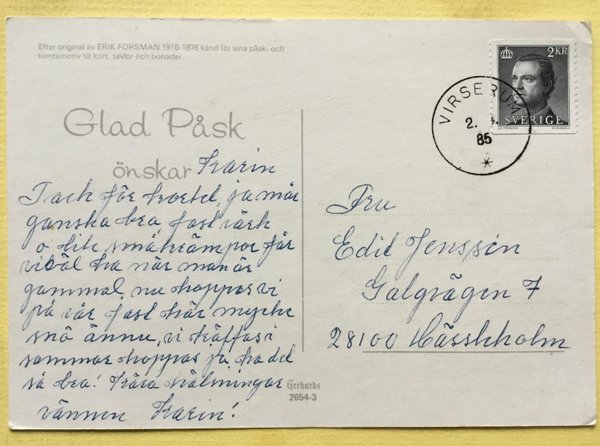 Efter original av ERIK FORSMAN 1916-1976 känd för sina påsk- och
tomtemotiv till kort, tavlor och bonader.
Glad Påsk
önskar Karin
Tack för kortet, ja mår
ganska bra fast värk
o lite småkrämpor får
vi väl ha när man är
gammal, nu hoppas vi
på vår fast här mycke
snö ännu, vi träffas i
sommar hoppas ja, ha det
så bra! Kära hälsningar
vännen Karin!
Gerhards
2654-3
2 KR
SVERIGE
VIRSERUM
2.
85
*
Fru
Edit Jenssen
Galgvägen 7
28100 Hässleholm